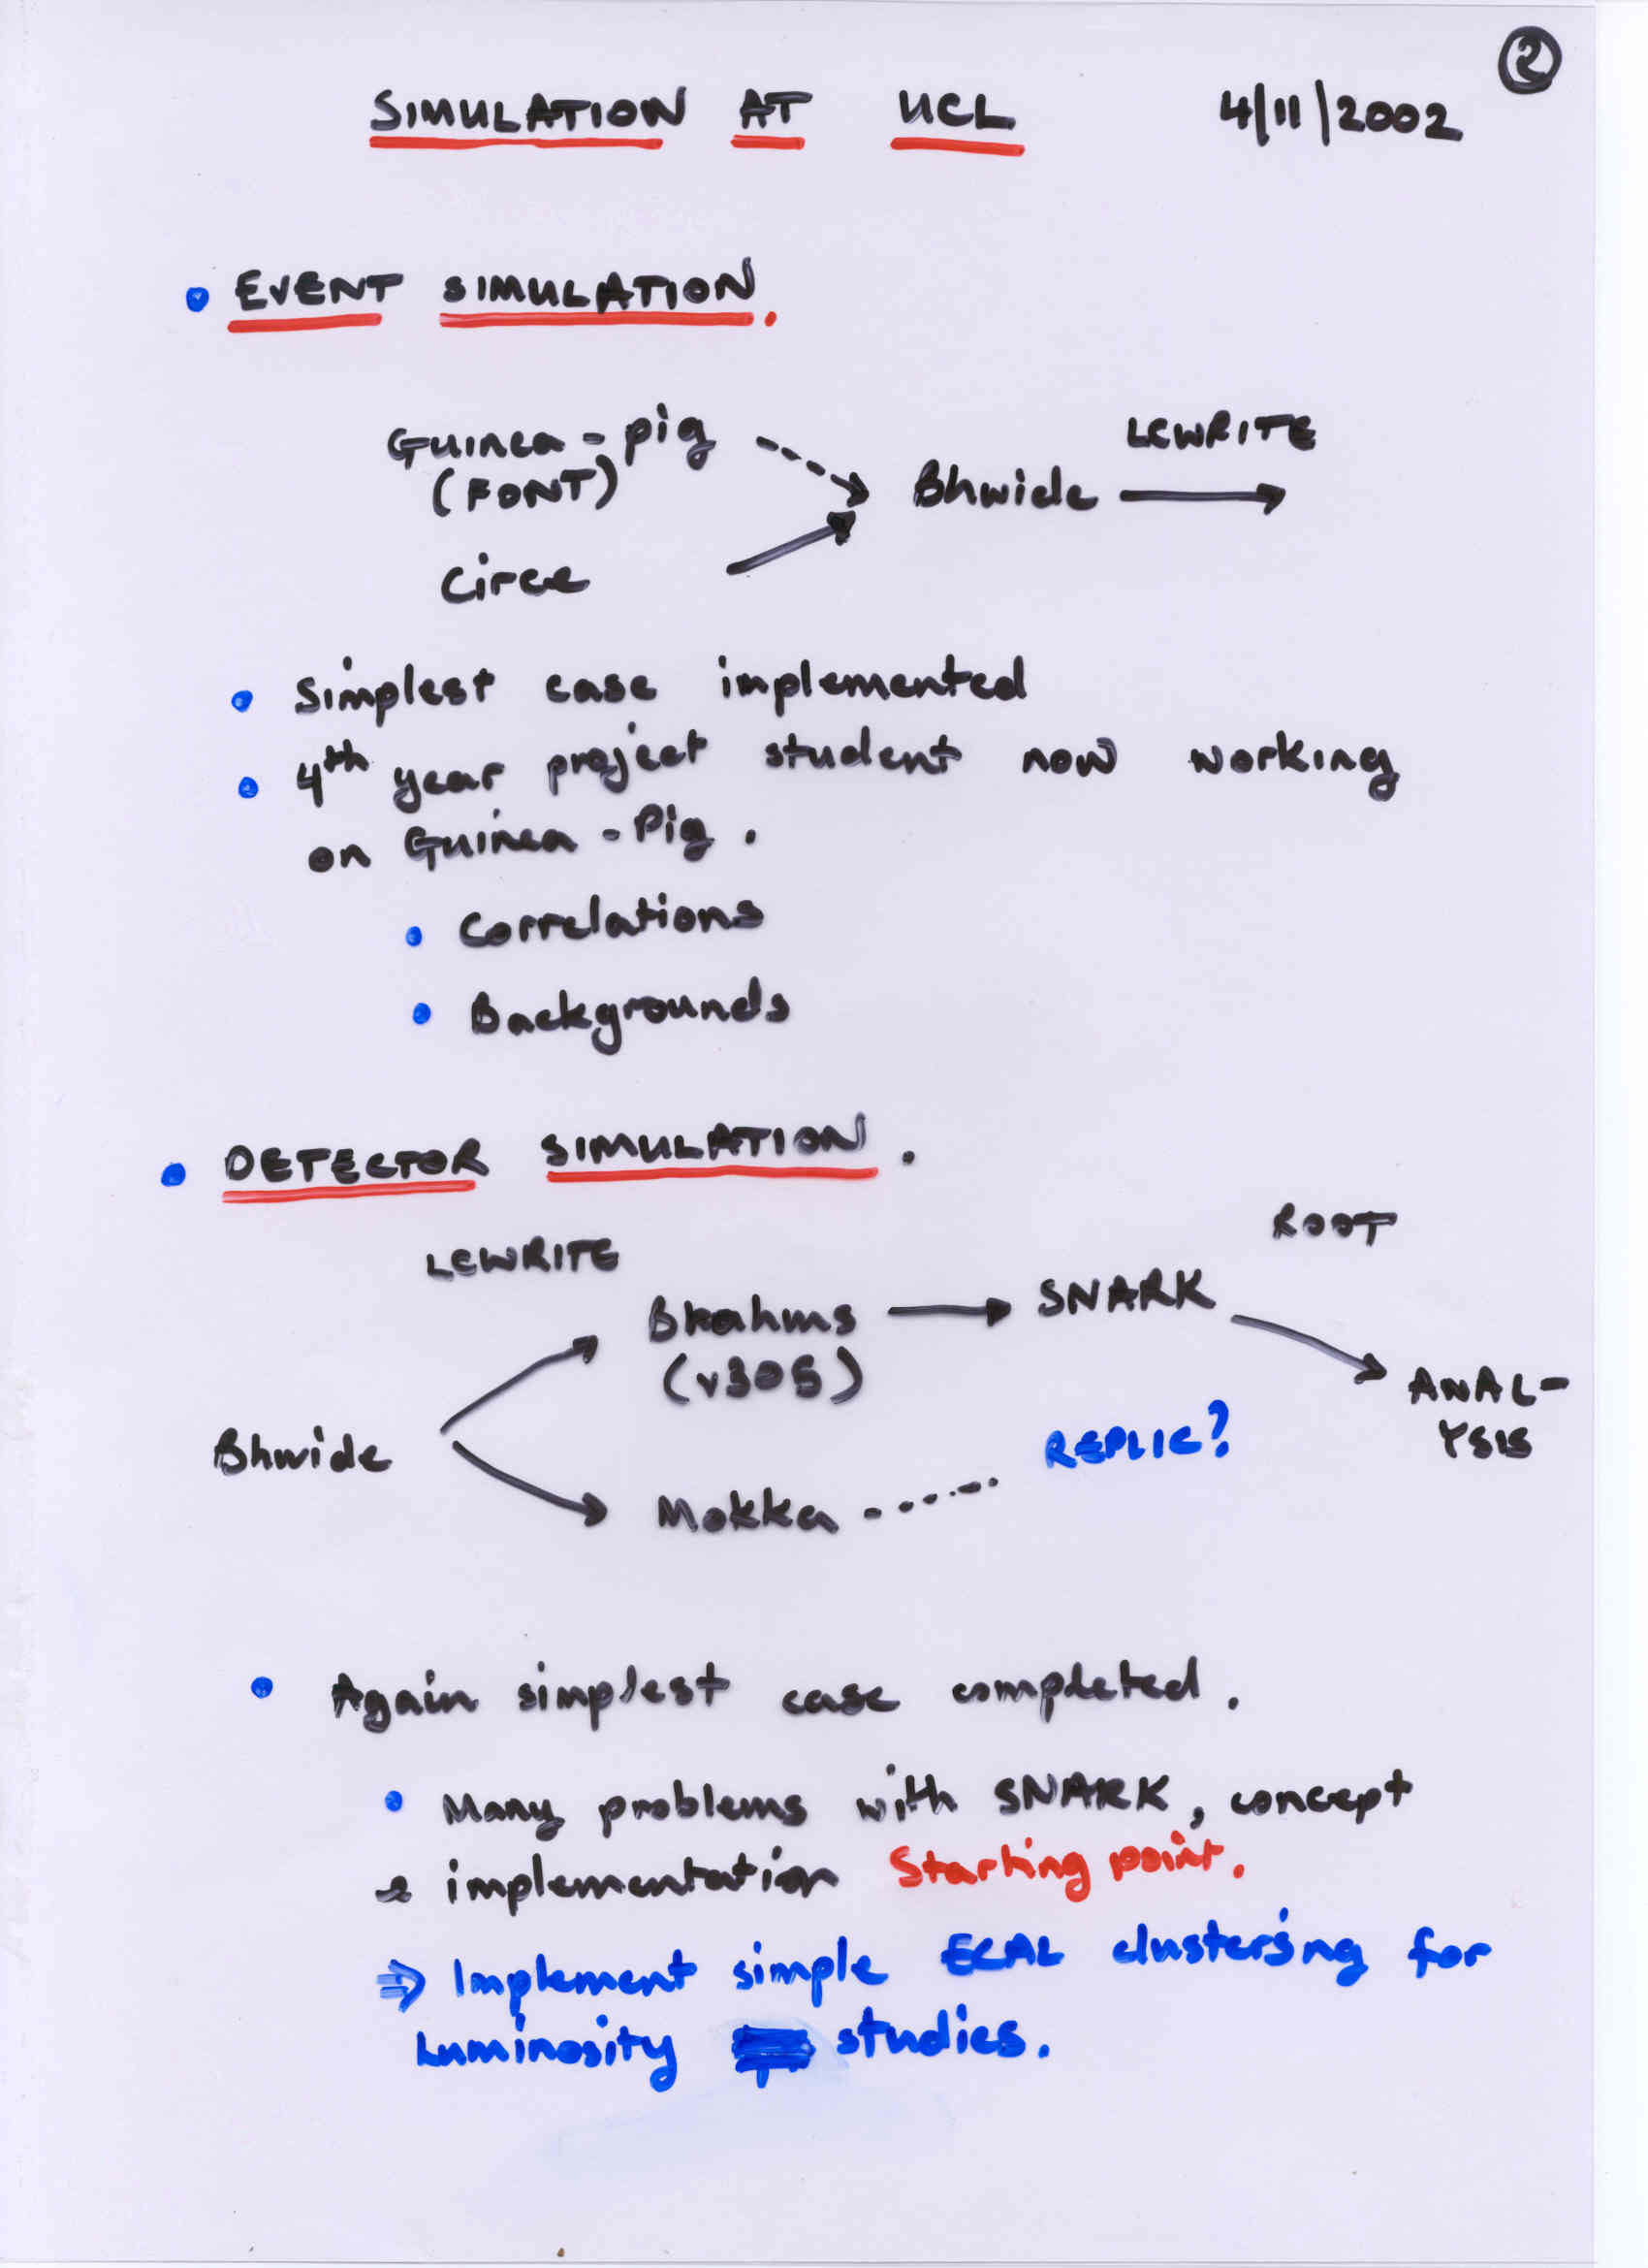 2
SIMULATION AT UCL 4/11/2002
• EVENT SIMULATION.
LCWRITE
Guinea-pig
(FONT)
Bhwide
Circe
• Simplest case implemented
• 4th year project student now working
on Guinea-Pig.
• Correlations
• Backgrounds
• DETECTOR SIMULATION.
ROOT
LCWRITE
Brahms → SNARK
(v305)
ANAL-
YSIS
Bhwide
REPLIC?
Mokka
• Again simplest case completed.
• Many problems with SNARK, concept
& implementation Starting point.
⇒ Implement simple ECAL clustering for
Luminosity studies.